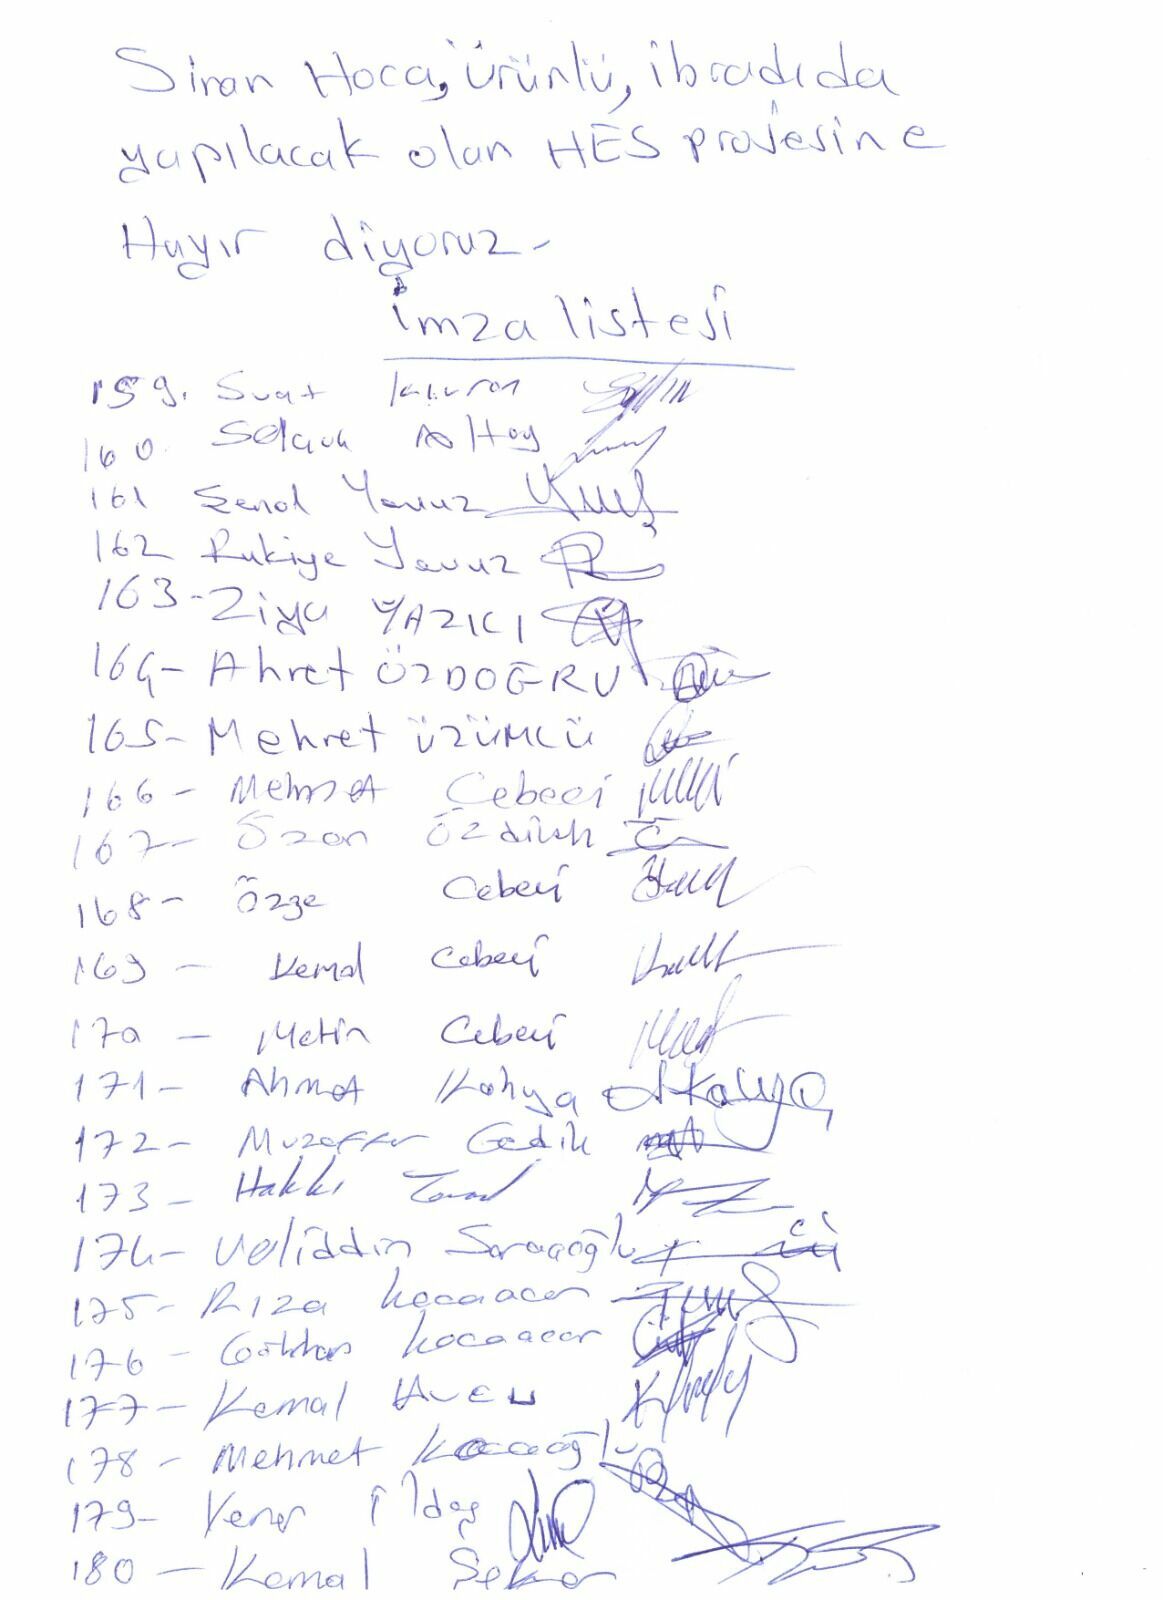 Sinan Hoca, Ürünlü, ibradıda
yapılacak olan HES projesine
Hayır diyoruz-
imza listesi
159. Suat Kıvran
160 Selçuk Altay
161 Şenol Yavuz
162 Rukiye Yavuz
163- Ziya YAZICI
164- Ahmet ÖZDOĞRU
165- Mehmet ÜZÜMCÜ
166- Mehmet Cebeci
167- Ozan Özdilek
168- Özge Cebeci
169 - Kemal Cebeci
170 - Metin Cebeci
171- Ahmet Kahya
172- Muzaffer Gedik
173- Hakkı
174- Veliddin Saraçoğlu
175- Rıza Kocaacar
176 - Gökhan Kocaacar
177- Kemal AVCU
178- Mehmet Kocaoğlu
179- Yener ildaş
180- Kemal Şeker